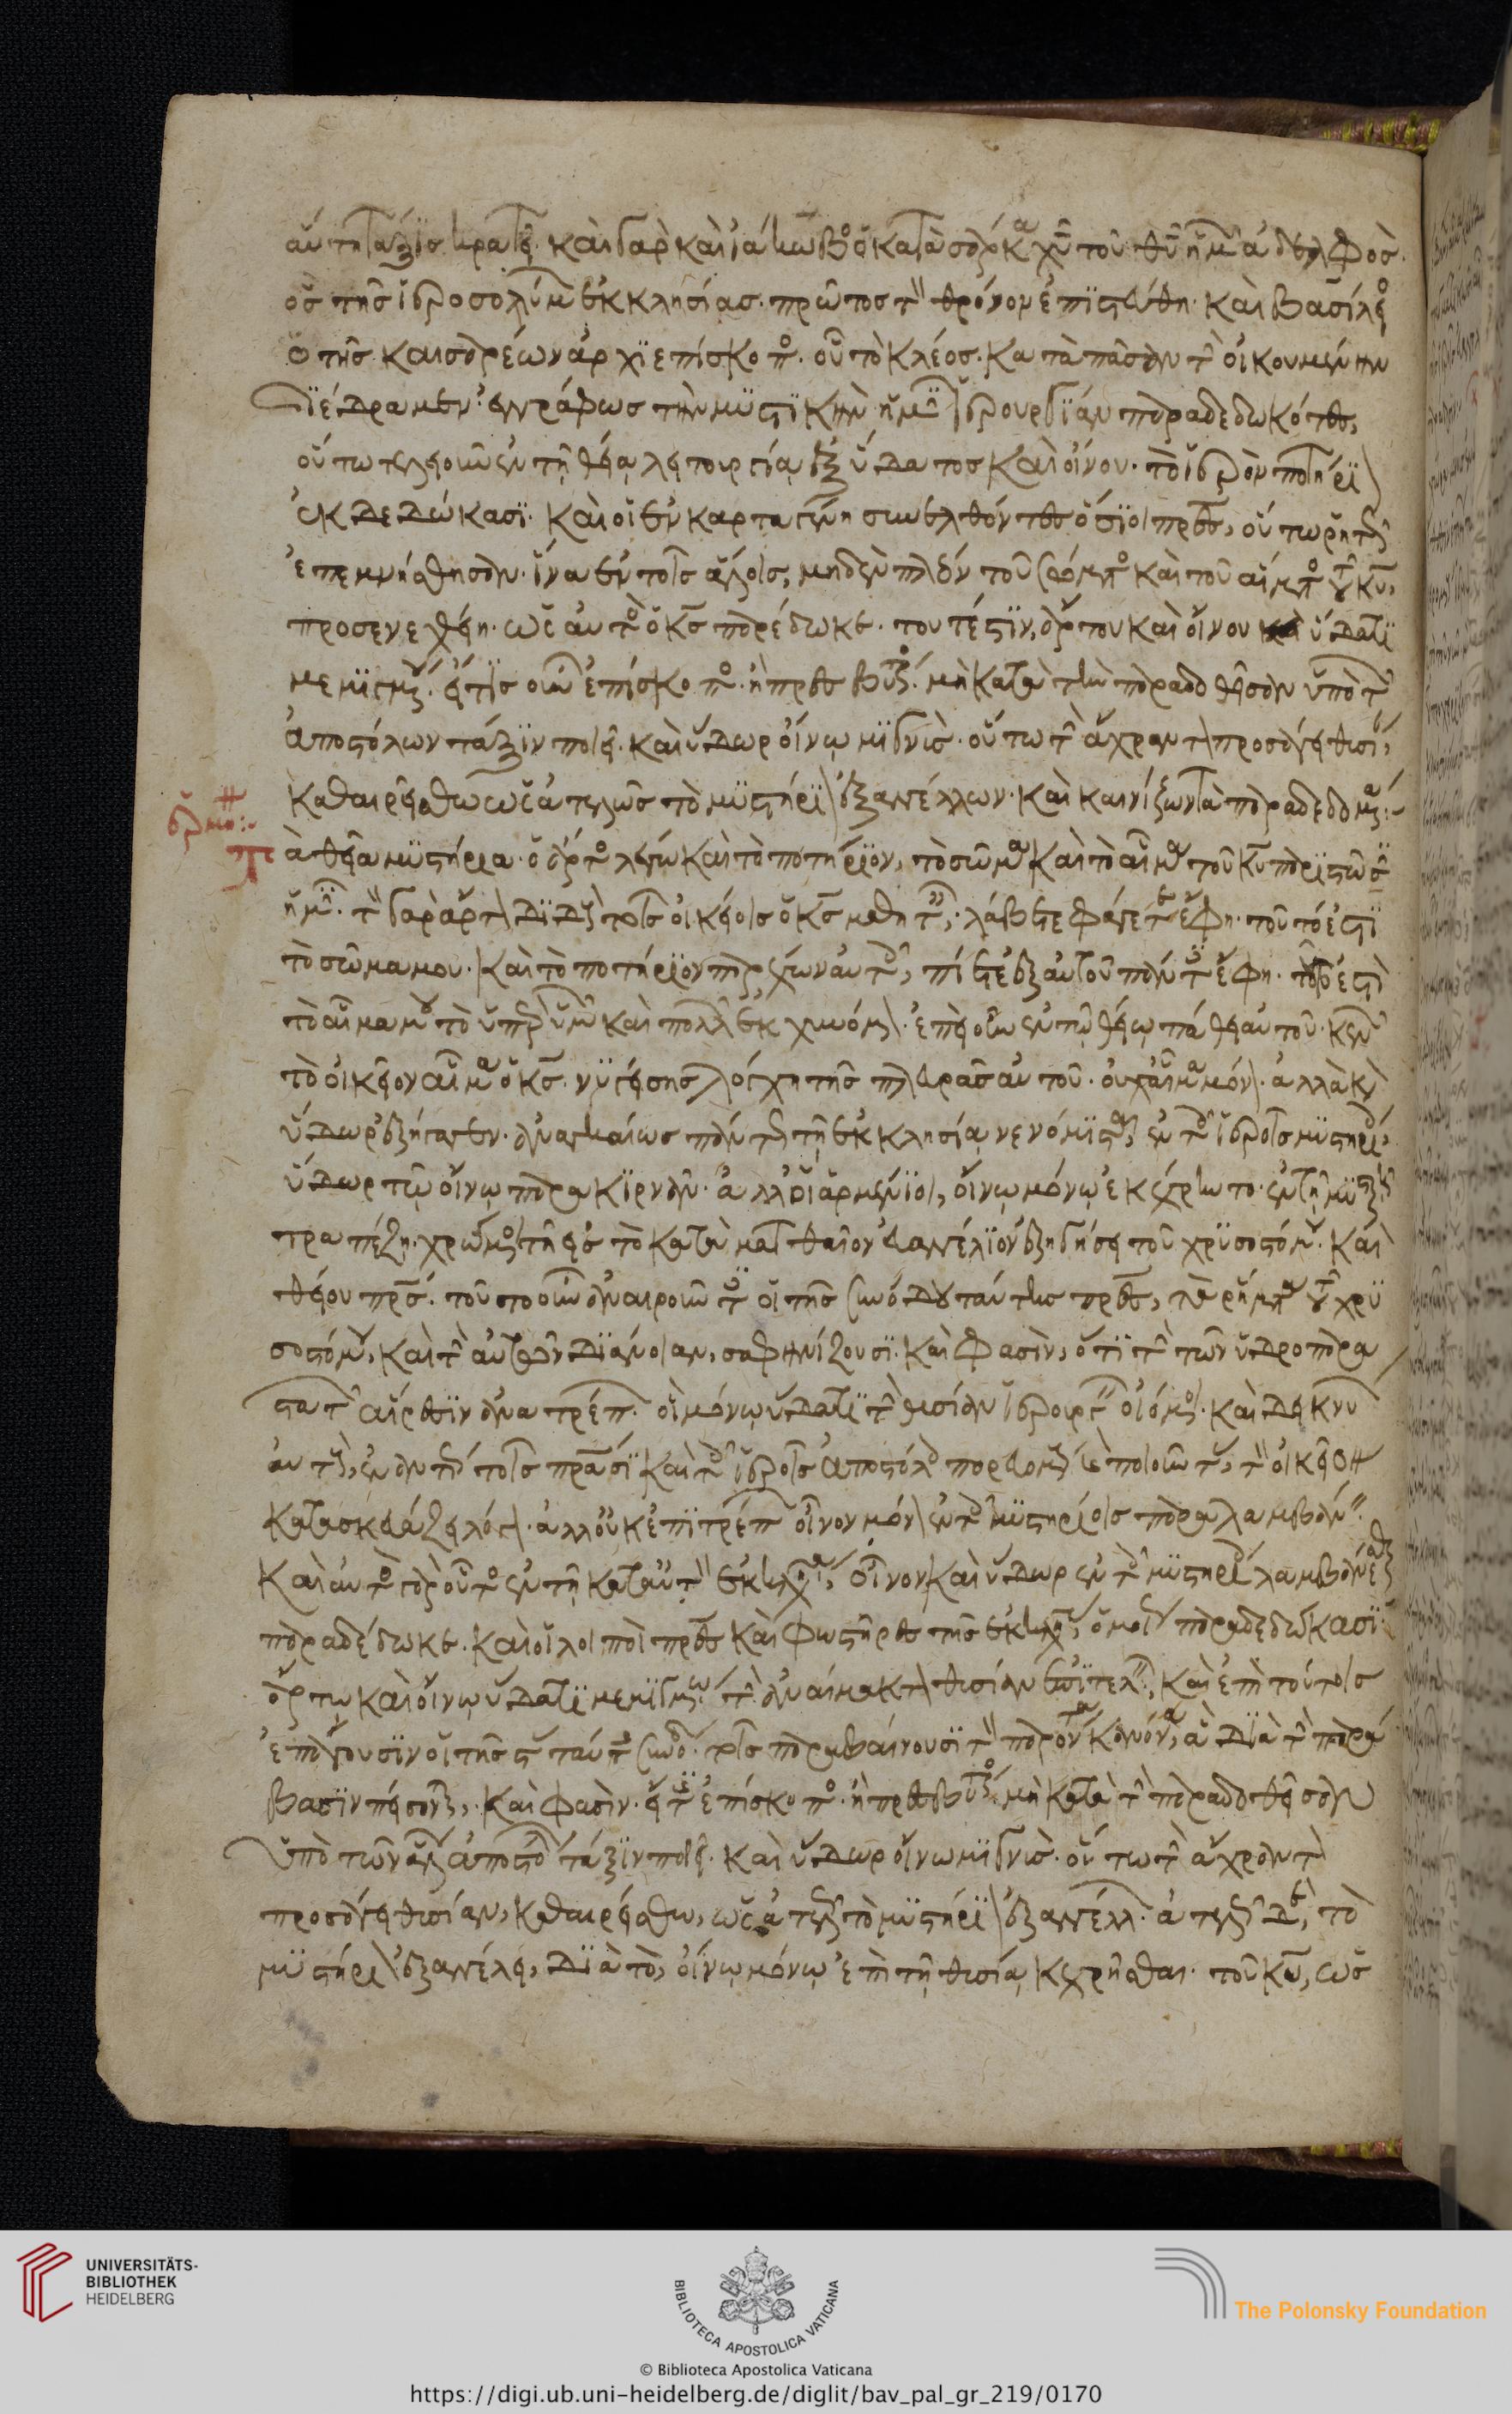 αὕτη τάξις κρατεῖ. καὶ γὰρ καὶ ἰάκωβος ὁ κατὰ σάρκα χυ τοῦ θυ ἡμῶν ἀδελφὸς.
ὃς τῆς ἱεροσολύμων ἐκκλησίας. πρῶτος τὸν θρόνον ἐπιστεύθη. καὶ βασίλειος
ὁ τῆς καισαρέων ἀρχϊεπίσκοπος. οὗ τὸ κλέος. κατὰ πᾶσαν τὴν οἰκουμένην
διέδραμεν. ἐγγράφως τὴν μυστικὴν ἡμῖν ἱερουργίαν παραδεδωκότες,
οὕτω τελειοῦν ἐν τῇ θείᾳ λειτουργίᾳ ἐξ ὕδατος καὶ οἴνου. τὸ ἱερὸν ποτήριον
ἐκδεδώκασι. καὶ οἱ ἐν καρταγένῃ συνελθόντες ὅσιοι πρες, οὕτω ῥητῶς
ἐπεμνήσθησαν. ἵνα ἐν τοῖς ἁγίοις, μηδὲν πλέον τοῦ σώματος καὶ τοῦ αἵματος τοῦ κυ,
προσενεχθείη. ὡς αὐτὸς ὁ κς παρέδωκε. τουτέστιν, ἄρτου καὶ οἴνου ὕδατι
μεμιγμένου. εἴ τις οὖν ἐπίσκοπος. ἢ πρεσβύτερος. μὴ κατὰ τὴν παραδοθεῖσαν ὑπὸ τῶν
ἀποστόλων τάξιν ποιεῖ. καὶ ὕδωρ οἴνῳ μιγνὺς. οὕτω τὴν ἄχραντον προσάγει θυσίαν,
καθαιρείσθω ὡς ἀτελῶς τὸ μυστήριον ἐξαγγέλλων. καὶ καινίζων τὰ παραδεδομένα:
ἑρμη:
τὰ θεῖα μυστήρια. ὁ ἄρτος λέγω καὶ τὸ ποτήριον, τὸ σῶμα καὶ τὸ αἷμα τοῦ κυ παριστῶσιν
ἡμῖν. τὸν γὰρ ἄρτον διδοὺς τοῖς οἰκείοις ὁ κς μαθηταῖς, λάβετε φάγετε ἔφη. τοῦτό ἐστι
τὸ σῶμα μου. καὶ τὸ ποτήριον παρέχων αὐτοῖς, πίετε ἐξ αὐτοῦ πάντες ἔφη. τοῦτό ἐστι
τὸ αἷμα μου τὸ ὑπὲρ ὑμῶν καὶ πολλῶν ἐκχυνόμενον. ἐπεὶ οὖν ἐν τῷ θείῳ πάθει αὐτοῦ. κενῶν
τὸ οἰκεῖον αἷμα ὁ κς. νυγείσης λόγχη τῆς πλευρᾶς αὐτοῦ. οὐχ αἷμα μόνον. ἀλλὰ καὶ
ὕδωρ ἐξήγαγεν. ἀναγκαίως πάντως τῇ ἐκκλησίᾳ νενόμισται, ἐν τοῖς ἱεροῖς μυστηρίοις
ὕδωρ τῷ οἴνῳ παρακιρνᾶν. ἀλλ' οἱ ἀρμένιοι, οἴνῳ μόνῳ ἐκέχρηντο. ἐν τῇ μυστικῇ
τραπέζῃ. χρώμενοι τῇ εἰς τὸ κατὰ ματθαῖον εὐαγγέλιον ἐξηγήσει τοῦ χρυσοστόμου. καὶ
θείου πρς. τοῦτο οὖν ἀναιροῦντες οἱ τῆς συνόδου ταύτης πρες, τὰ ῥήματα τοῦ χρυ
σοστόμου, καὶ τὴν αὐτῶν διάνοιαν, σαφηνίζουσι. καὶ φασὶν, ὅτι τὴν τῶν ὑδροπαρα
στατῶν αἵρεσιν ἀνατρέπων. οἳ μόνῳ ὕδατι τὴν θυσίαν ἱερουργεῖν οἰόμενοι. καὶ δεικνὺς
αὐτοὺς, ἐναντία τοῖς πράξεσι καὶ τοῖς ἱεροῖς ἀποστόλοις πορευομένους ποιοῦντας, τὸν οἰκεῖον
κατασκευάζει λόγον. ἀλλ' οὐκ ἐπιτρέπων οἶνον μόνον ἐν τοῖς μυστηρίοις παραλαμβάνειν.
καὶ αὐτὸς γὰρ οὗτος ἐν τῇ κατ' αὐτὸν ἐκκλησίᾳ, οἶνον καὶ ὕδωρ ἐν τοῖς μυστηρίοις λαμβάνεσθαι
παραδέδωκε. καὶ οἱ λοιποὶ πρες καὶ φωστῆρες τῆς ἐκκλησίας, ὁμοίως παραδεδώκασιν
ἄρτῳ καὶ οἴνῳ ὕδατι μεμιγμένῳ. τὴν ἀναίμακτον θυσίαν ἐπιτελεῖν, καὶ ἐπὶ τούτοις
ἐπάγουσιν οἱ τῆς ς ταύτης συνόδου. τοῖς παραβαίνουσι τὸν παρόντα κανόνα, ἃ διὰ τὴν παρά
βασιν πείσονται. καὶ φασὶν. εἴ τις ἐπίσκοπος. ἢ πρεσβύτερος. μὴ κατὰ τὴν παραδοθεῖσαν
ὑπὸ τῶν ἁγίων ἀποστόλων τάξιν ποιεῖ. καὶ ὕδωρ οἴνω μιγνὺς. οὕτω τὴν ἄχραντον
προσάγει θυσίαν, καθαιρείσθω, ὡς ἀτελῶς τὸ μυστήριον ἐξαγγέλλων. ἀτελῶς δὲ, τὸ
μυστήριον ἐξαγγέλει, διὰ τὸ, οἴνῳ μόνῳ ἐπὶ τῇ θυσίᾳ κεχρῆσθαι. τοῦ κυ, ὡς
UNIVERSITÄTS-
BIBLIOTHEK
HEIDELBERG
BIBLIOTECA APOSTOLICA VATICANA
The Polonsky Foundation
© Biblioteca Apostolica Vaticana
https://digi.ub.uni-heidelberg.de/diglit/bav_pal_gr_219/0170